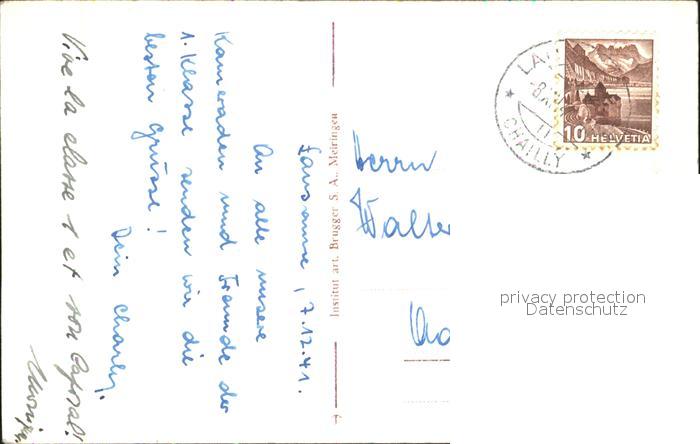 Lausanne, 7.12.41.
An alle unsere
Kameraden und Freunde der
1. Klasse senden wir die
besten Grüsse!
Dein Charly.
Vive la classe 1 et son Caporal!
Institut art. Brugger S. A., Meiringen
Herrn
Walter
LA
CHAILLY
10 HELVETIA
privacy protection
Datenschutz